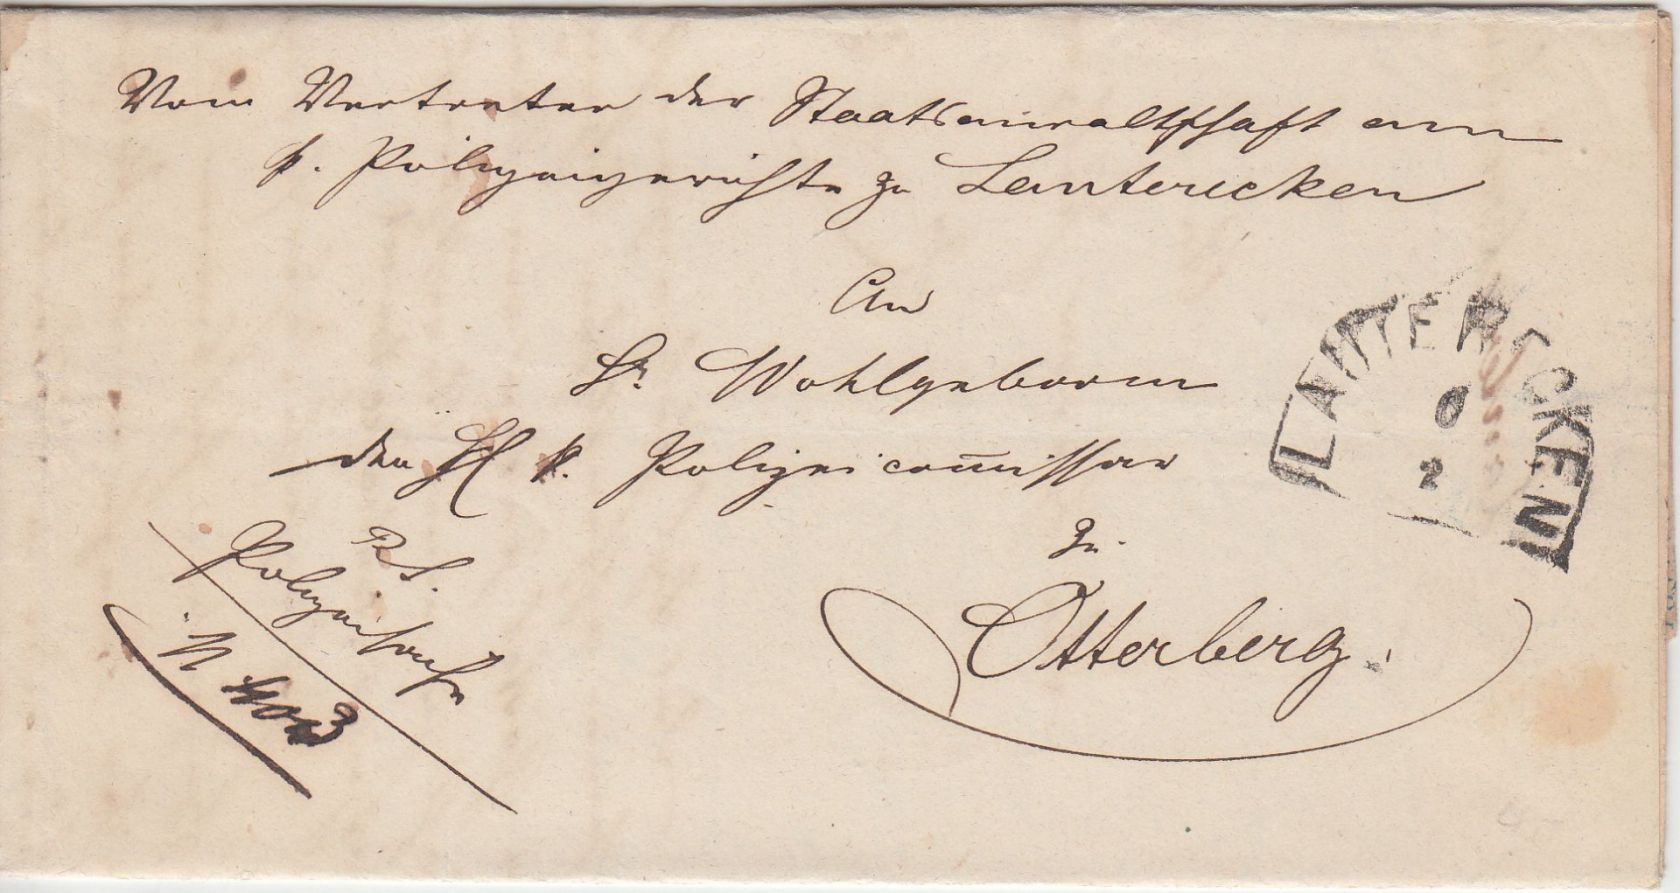 Vom Vertreter der Staatsanwaltschaft am
k. Polizeigerichte zu Lauterecken
An
Sr. Wohlgeboren
den H k. Polizeicom̅issär
zu
Otterberg.
LAUTERECKEN
6
2
R. S.
Polizeisache
N